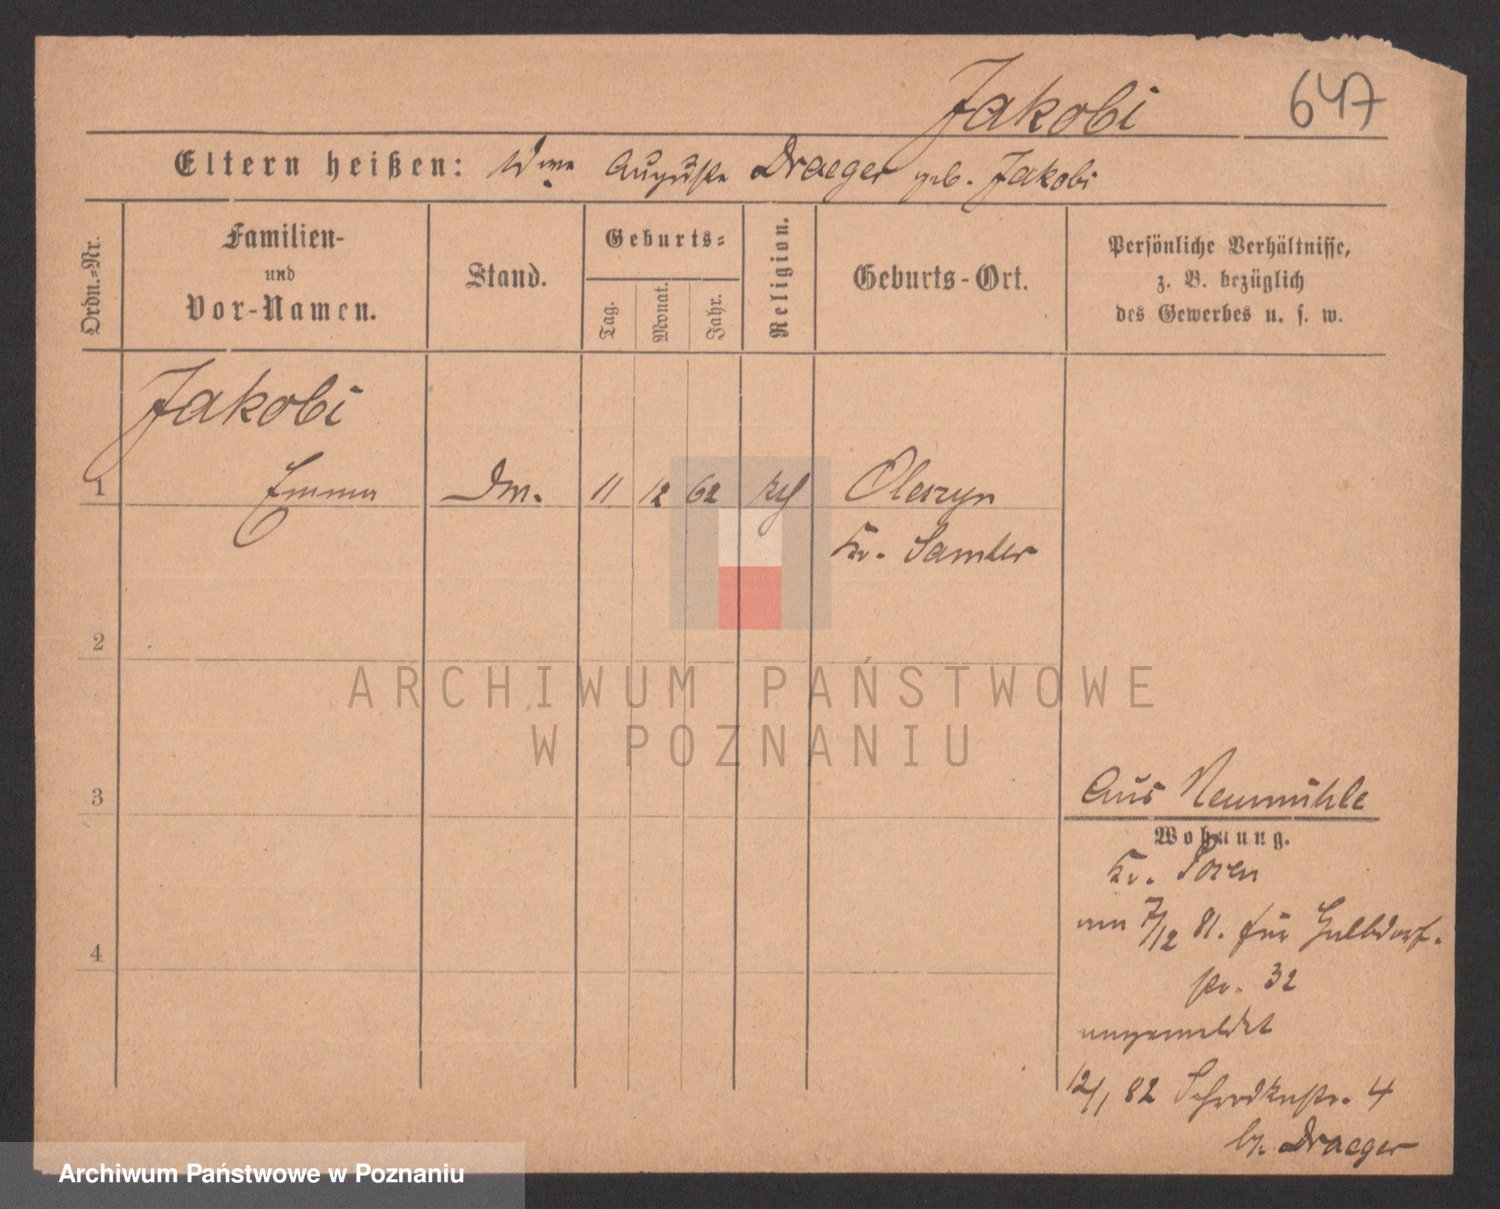 Jakobi 647
Eltern heißen: Wwe Auguste Draeger geb. Jakobi
Ordn.=Nr.
Familien-
und
Vor-Namen.
Stand.
Geburts=
Tag.
Monat.
Jahr.
Religion.
Geburts-Ort.
Persönliche Verhältnisse,
z. B. bezüglich
des Gewerbes u. s. w.
Jakobi
1 Emma Dm. 11 12 62 Oleszyn
Kr. Samter
2
ARCHIWUM PAŃSTWOWE
W POZNANIU
3
Aus Neumühle
Wohnung.
Kr. Posen
am 7/12 81. für Halbdorf-
str. 32
angemeldet
4
12/1 82 Schrodkastr. 4
by. Draeger
Archiwum Państwowe w Poznaniu